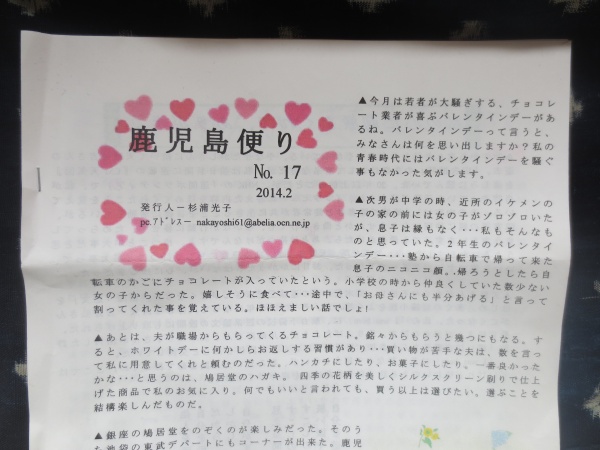 鹿児島便り
No. 17
2014.2
発行人ー杉浦光子
pc.ｱﾄﾞﾚｽー nakayoshi61@abelia.ocn.ne.jp
▲今月は若者が大騒ぎする、チョコレ
ート業者が喜ぶバレンタインデーがあ
るね。バレンタインデーって言うと、
みなさんは何を思い出しますか？私の
青春時代にはバレンタインデーを騒ぐ
事もなかった気がします。
▲次男が中学の時、近所のイケメンの
子の家の前には女の子がゾロゾロいた
が、息子は縁もなく・・・私もそんなも
のと思っていた。２年生のバレンタイ
ンデー・・・塾から自転車で帰って来た
息子のニコニコ顔。.帰ろうとしたら自
転車のかごにチョコレートが入っていたという。小学校の時から仲良くしていた数少ない
女の子からだった。嬉しそうに食べて・・・途中で、「お母さんにも半分あげる」と言って
割ってくれた事を覚えている。ほほえましい話でしょ！
▲あとは、夫が職場からもらってくるチョコレート。銘々からもらうと幾つにもなる。す
ると、ホワイトデーに何かしらお返しする習慣があり・・・買い物が苦手な夫は、数を言っ
て私に用意してくれと頼むのだった。ハンカチにしたり、お菓子にしたり。一番良かった
かな・・・と思うのは、鳩居堂のハガキ。 四季の花柄を美しくシルクスクリーン刷りで仕上
げた商品で私のお気に入り。何でもいいと言われても、買う以上は選びたい。選ぶことを
結構楽しんだものだ。
▲銀座の鳩居堂をのぞくのが楽しみだった。そのう
ち池袋の東武デパートにもコーナーが出来た。鹿児